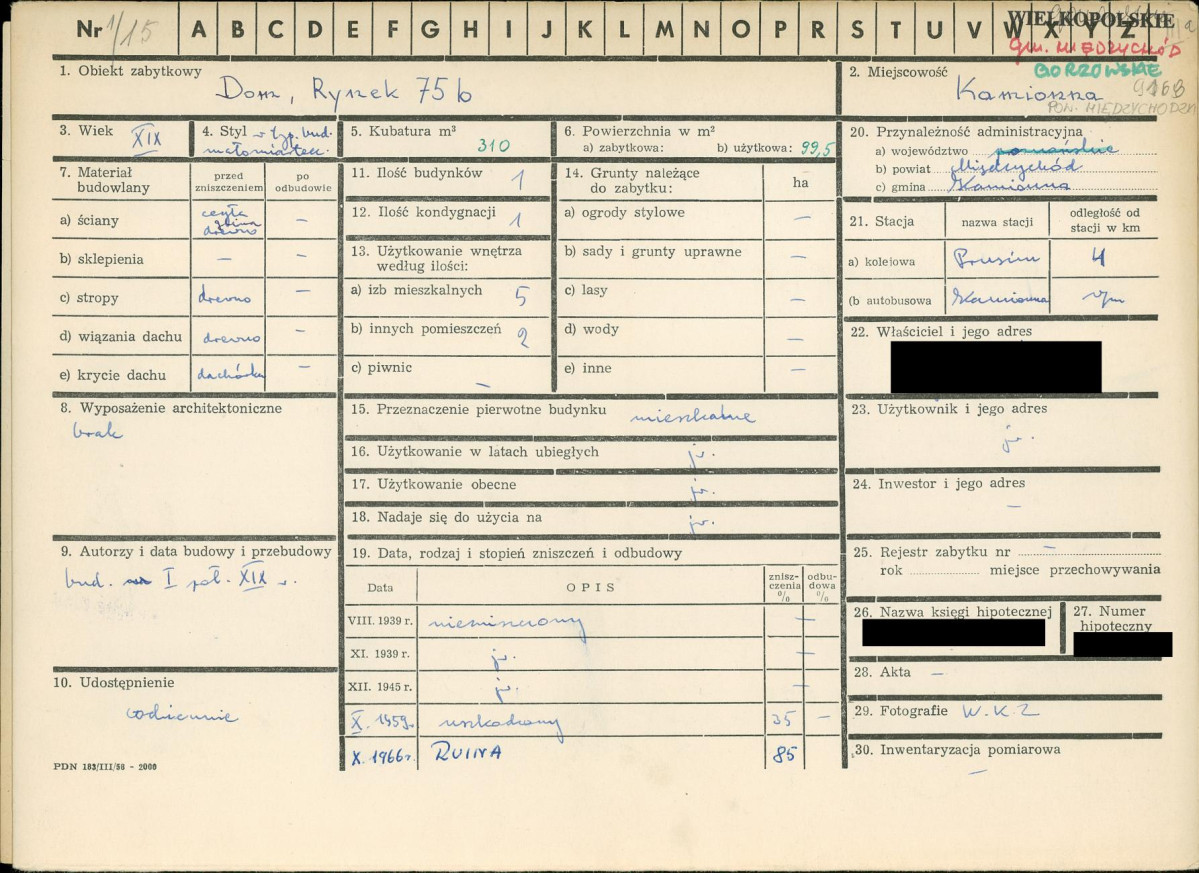 Nr 1/15 A B C D E F G H I J K L M N O P R S T U V W X Y Z
WIELKOPOLSKIE
gm. MIĘDZYCHÓD
GORZOWSKIE
1. Obiekt zabytkowy
Dom, Rynek 75 b
2. Miejscowość
Kamionna
9168
POW. MIĘDZYCHODZKI
3. Wiek
XIX
4. Styl w typ. bud.
małomiasteczk.
5. Kubatura m³
310
6. Powierzchnia w m²
a) zabytkowa: b) użytkowa: 99,5
7. Materiał budowlany
przed zniszczeniem
po odbudowie
a) ściany
cegła
glina
drewno
–
b) sklepienia – –
c) stropy drewno –
d) wiązania dachu drewno –
e) krycie dachu dachówka –
8. Wyposażenie architektoniczne
brak
9. Autorzy i data budowy i przebudowy
bud. I poł. XIX w.
10. Udostępnienie
codziennie
PDN 183/III/58 - 2000
11. Ilość budynków 1
12. Ilość kondygnacji 1
13. Użytkowanie wnętrza
według ilości:
a) izb mieszkalnych 5
b) innych pomieszczeń 2
c) piwnic –
14. Grunty należące
do zabytku:
ha
a) ogrody stylowe –
b) sady i grunty uprawne –
c) lasy –
d) wody –
e) inne –
15. Przeznaczenie pierwotne budynku mieszkalne
16. Użytkowanie w latach ubiegłych jw.
17. Użytkowanie obecne jw.
18. Nadaje się do użycia na jw.
19. Data, rodzaj i stopień zniszczeń i odbudowy
Data
OPIS
zniszczenia %
odbudowa %
VIII. 1939 r. niezniszczony –
XI. 1939 r. jw. –
XII. 1945 r. jw. –
X. 1959r. uszkodzony 35 –
X. 1966r. RUINA 85
20. Przynależność administracyjna
a) województwo poznańskie
b) powiat Międzychód
c) gmina Kamionna
21. Stacja
nazwa stacji
odległość od
stacji w km
a) kolejowa Prusim 4
(b autobusowa Kamionna w/m
22. Właściciel i jego adres
23. Użytkownik i jego adres
jw.
24. Inwestor i jego adres
–
25. Rejestr zabytku nr –
rok miejsce przechowywania
26. Nazwa księgi hipotecznej
27. Numer
hipoteczny
28. Akta –
29. Fotografie W.K.Z
30. Inwentaryzacja pomiarowa
–